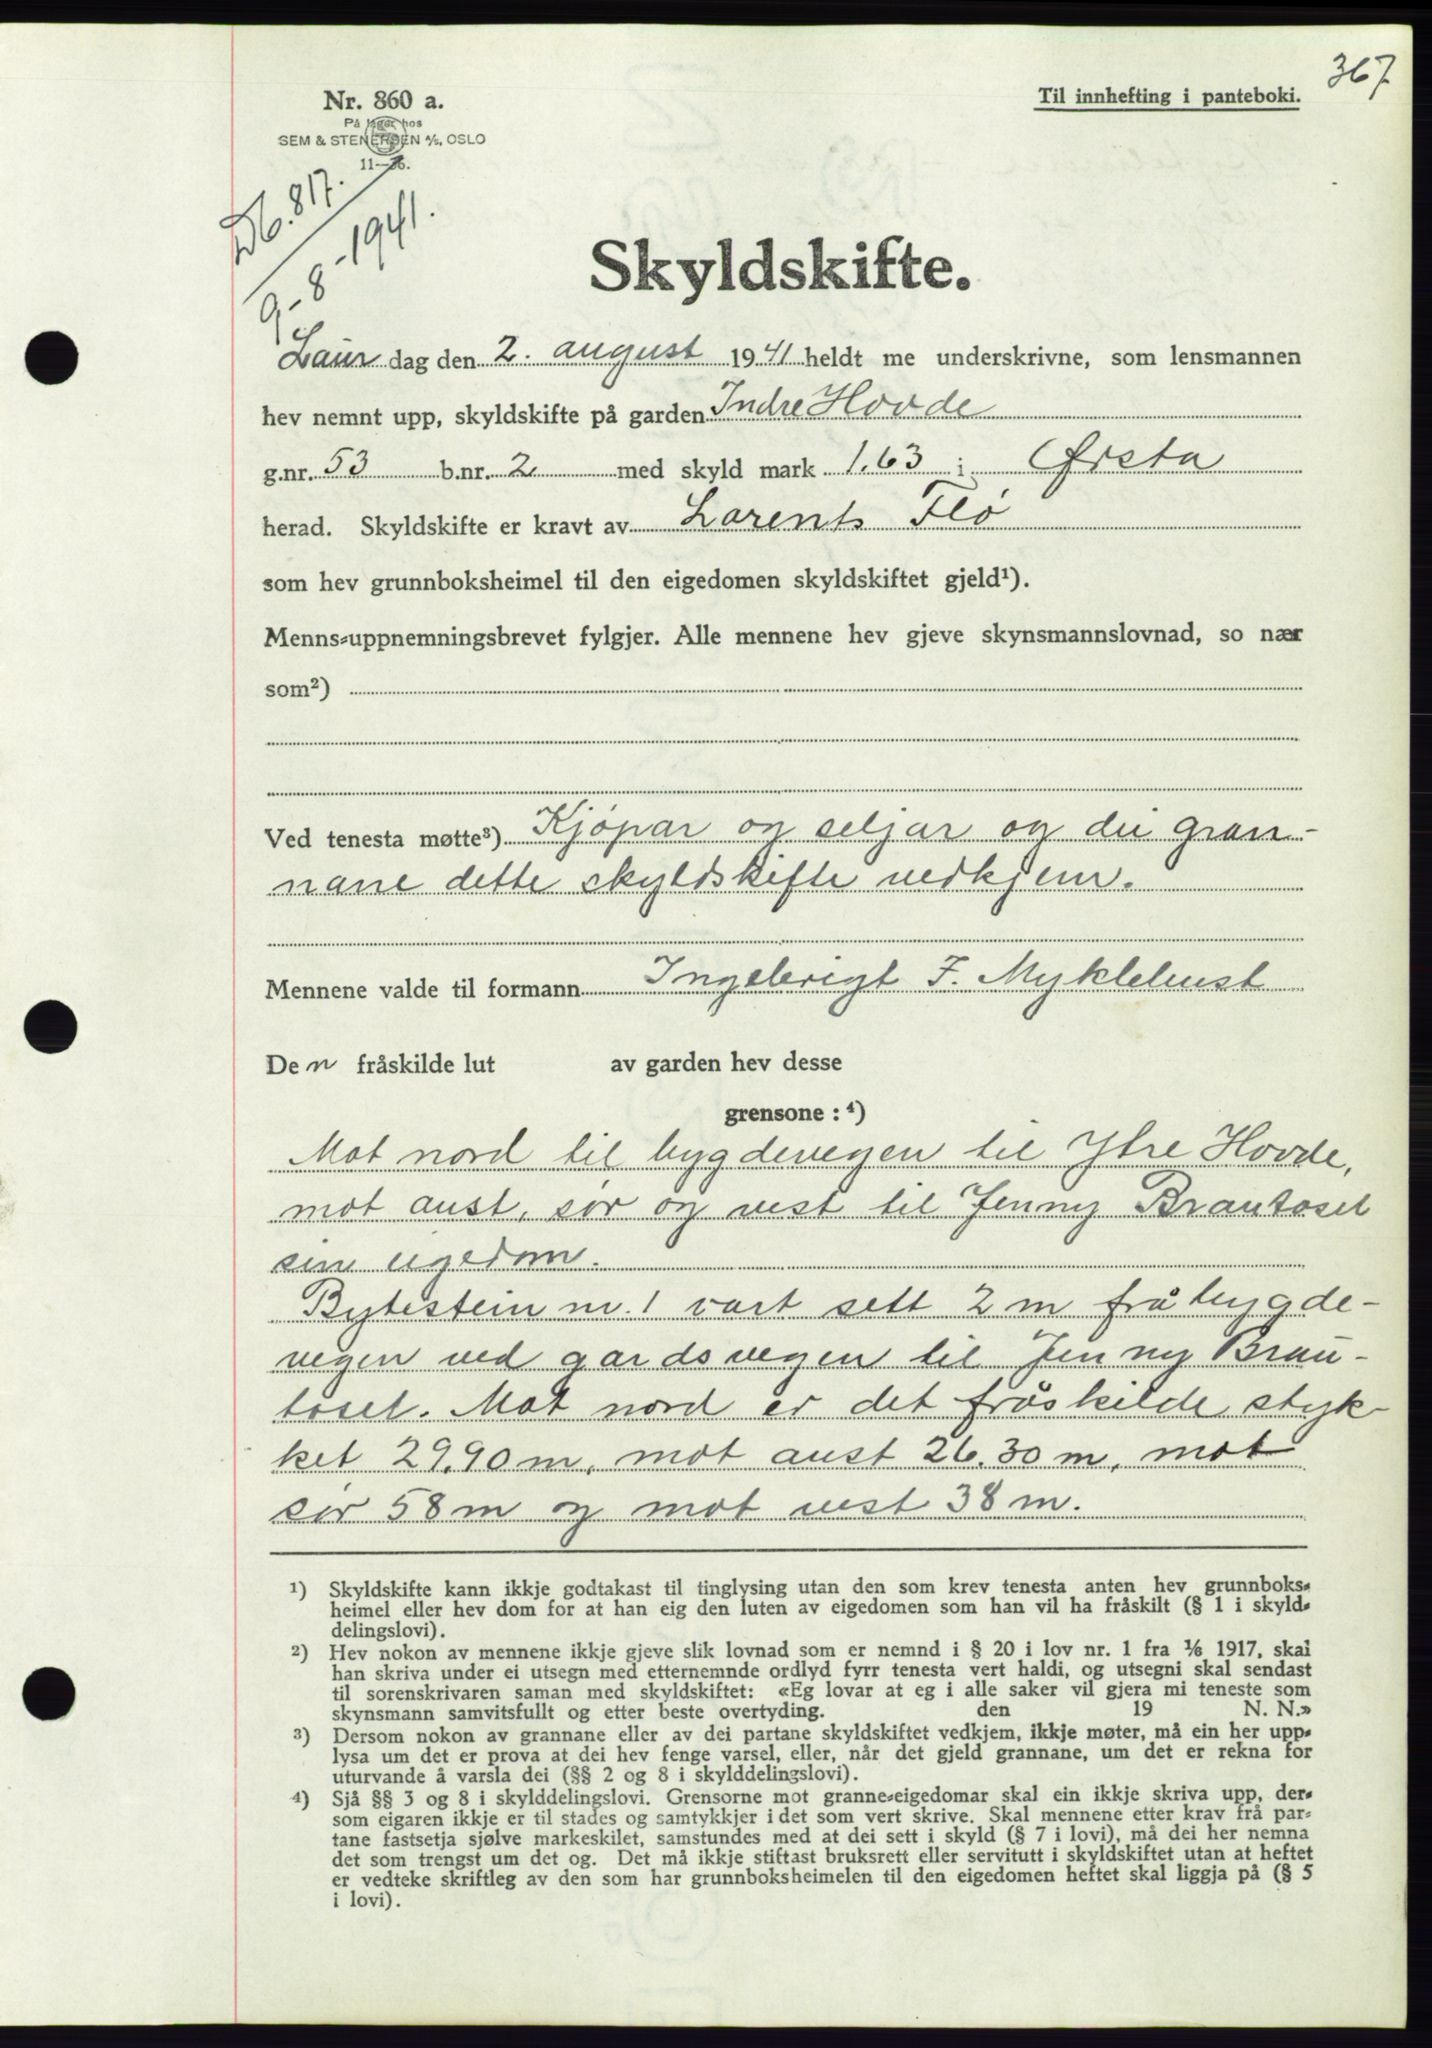 367
Nr. 860 a.
På lager hos
SEM & STENERSEN A/S, OSLO
11—36.
Til innhefting i panteboki.
Db. 817.
9-8-1941.
Skyldskifte.
Laur dag den 2. august 1941 heldt me underskrivne, som lensmannen
hev nemnt upp, skyldskifte på garden Indre Hovde
g.nr. 53 b.nr. 2 med skyld mark 1.63 i Ørsta
herad. Skyldskifte er kravt av Lorents Flø
som hev grunnboksheimel til den eigedomen skyldskiftet gjeld¹).
Menns-uppnemningsbrevet fylgjer. Alle mennene hev gjeve skynsmannslovnad, so nær
som²)
Ved tenesta møtte³) Kjøpar og seljar og dei gran-
nane dette skyldskifte vedkjem.
Mennene valde til formann Ingebrigt F. Myklebust
Den fråskilde lut av garden hev desse
grensone : ⁴)
Mot nord til bygdevegen til Ytre Hovde,
mot aust, sør og vest til Jenny Brautaset
sin eigedom.
Bytestein nr. 1 vart sett 2 m frå bygde-
vegen ved gardsvegen til Jenny Brau-
taset. Mot nord er det fråskilde styk-
ket 29.90 m, mot aust 26.30 m, mot
sør 58 m og mot vest 38 m.
¹) Skyldskifte kann ikkje godtakast til tinglysing utan den som krev tenesta anten hev grunnboks-
heimel eller hev dom for at han eig den luten av eigedomen som han vil ha fråskilt (§ 1 i skyld-
delingslovi).
²) Hev nokon av mennene ikkje gjeve slik lovnad som er nemnd i § 20 i lov nr. 1 fra 1/6 1917, skal
han skriva under ei utsegn med etternemnde ordlyd fyrr tenesta vert haldi, og utsegni skal sendast
til sorenskrivaren saman med skyldskiftet: «Eg lovar at eg i alle saker vil gjera mi teneste som
skynsmann samvitsfullt og etter beste overtyding. den 19 N. N.»
³) Dersom nokon av grannane eller av dei partane skyldskiftet vedkjem, ikkje møter, må ein her upp-
lysa um det er prova at dei hev fenge varsel, eller, når det gjeld grannane, um det er rekna for
uturvande å varsla dei (§§ 2 og 8 i skylddelingslovi).
⁴) Sjå §§ 3 og 8 i skylddelingslovi. Grensorne mot granne-eigedomar skal ein ikkje skriva upp, der-
som eigaren ikkje er til stades og samtykkjer i det som vert skrive. Skal mennene etter krav frå par-
tane fastsetja sjølve markeskilet, samstundes med at dei sett i skyld (§ 7 i lovi), må dei her nemna
det som trengst um det og. Det må ikkje stiftast bruksrett eller servitutt i skyldskiftet utan at heftet
er vedteke skriftleg av den som har grunnboksheimelen til den eigedomen heftet skal liggja på (§ 5
i lovi).